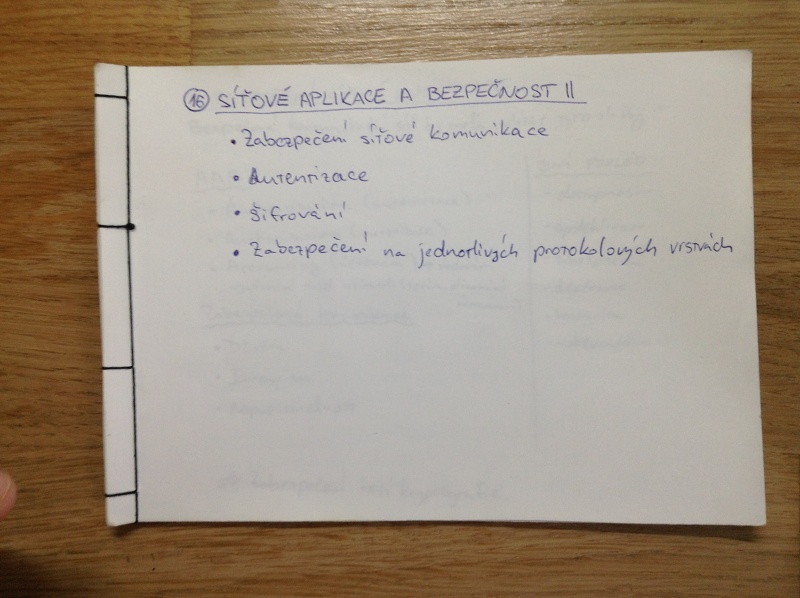 16 SÍŤOVÉ APLIKACE A BEZPEČNOST II
• Zabezpečení síťové komunikace
• Autentizace
• Šifrování
• Zabezpečení na jednotlivých protokolových vrstvách